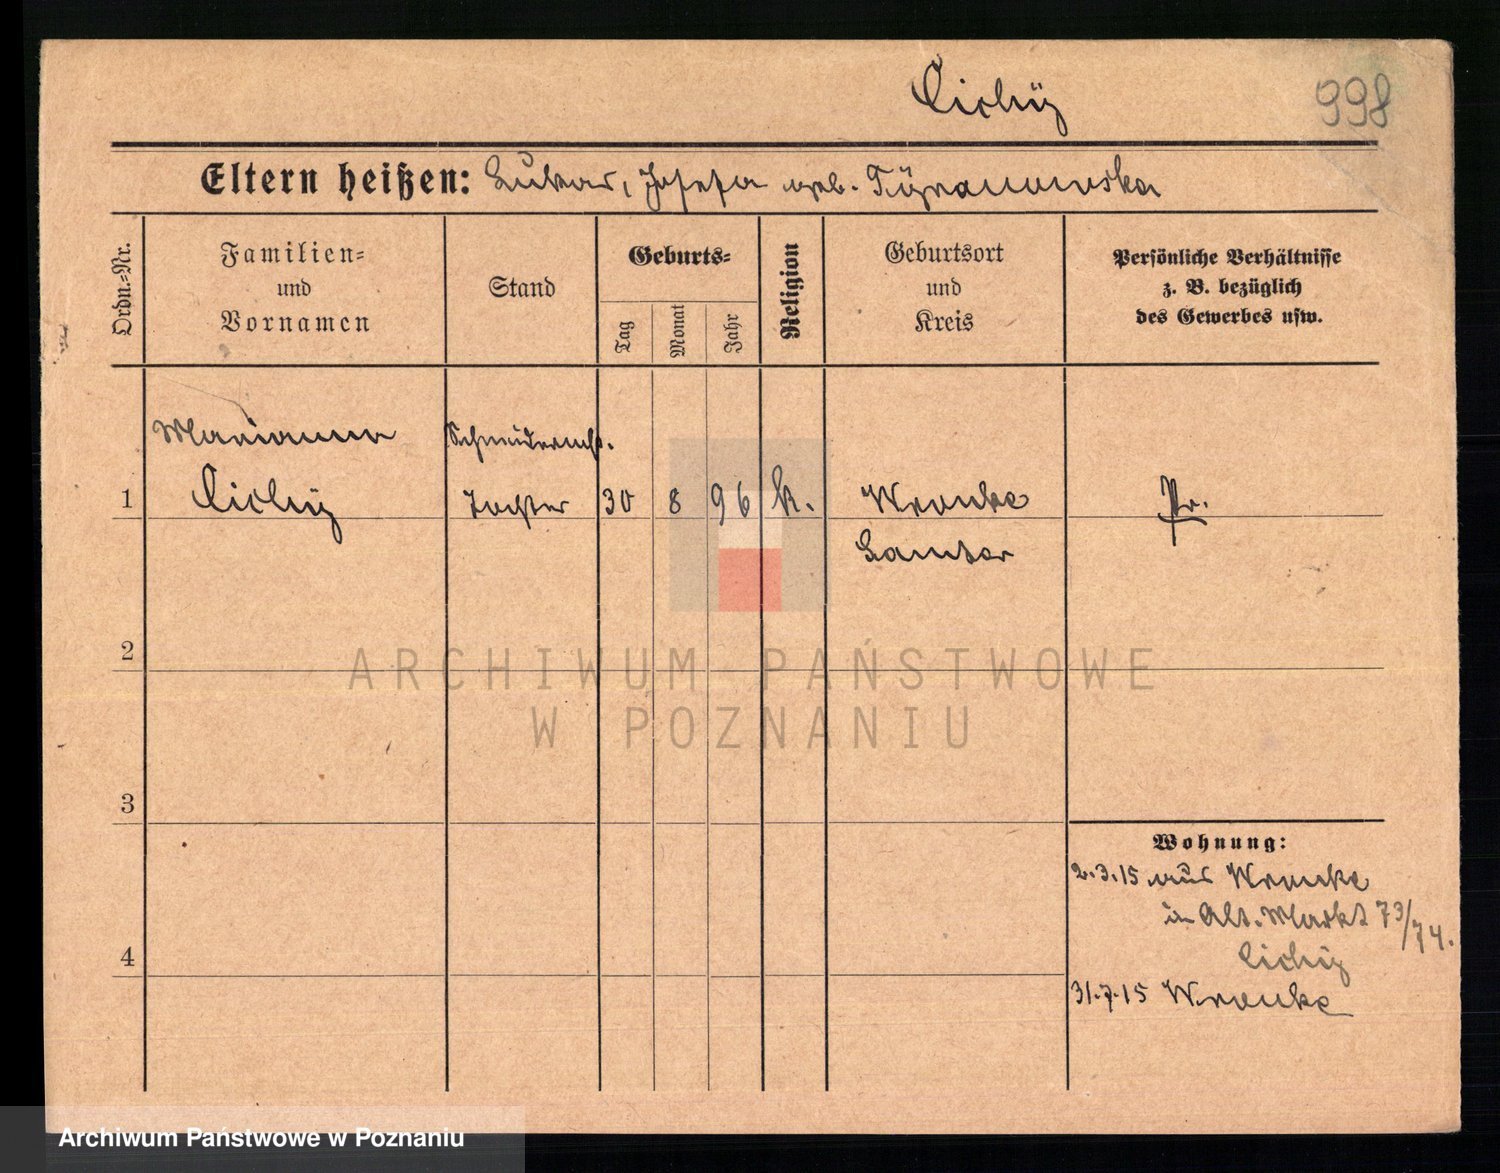 Cichÿ
998
Eltern heißen: Lukas, Josefa geb. Tyranowska
Ordn.=Nr.
Familien=
und
Vornamen
Stand
Geburts=
Tag
Monat
Jahr
Religion
Geburtsort
und
Kreis
Persönliche Verhältnisse
z. B. bezüglich
des Gewerbes usw.
Marianna Schneidermstr.
1 Cichÿ Tochter 30 8 96 k. Wronke Pr.
Samter
2
ARCHIWUM PAŃSTWOWE
W POZNANIU
3
Wohnung:
2.3.15 aus Wronke
in Alt. Markt 73/74.
Cichÿ
4
31.7.15 Wronke
Archiwum Państwowe w Poznaniu